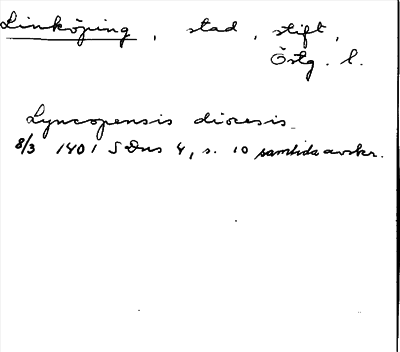 Linköping, stad, stift,
Östg. l.
Lyncopensis diocesis
8/3 1401 SDns 4, s. 10 samtida avskr.